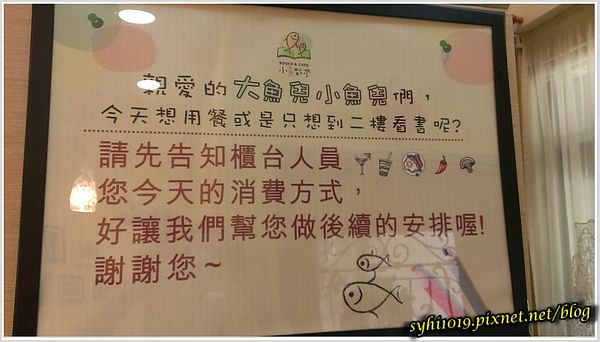 BOOKS & CAFE
親愛的大魚兒小魚兒們，
今天想用餐或是只想到二樓看書呢?
請先告知櫃台人員
您今天的消費方式，
好讓我們幫您做後續的安排喔!
謝謝您~
syhi1019.pixnet.net/blog